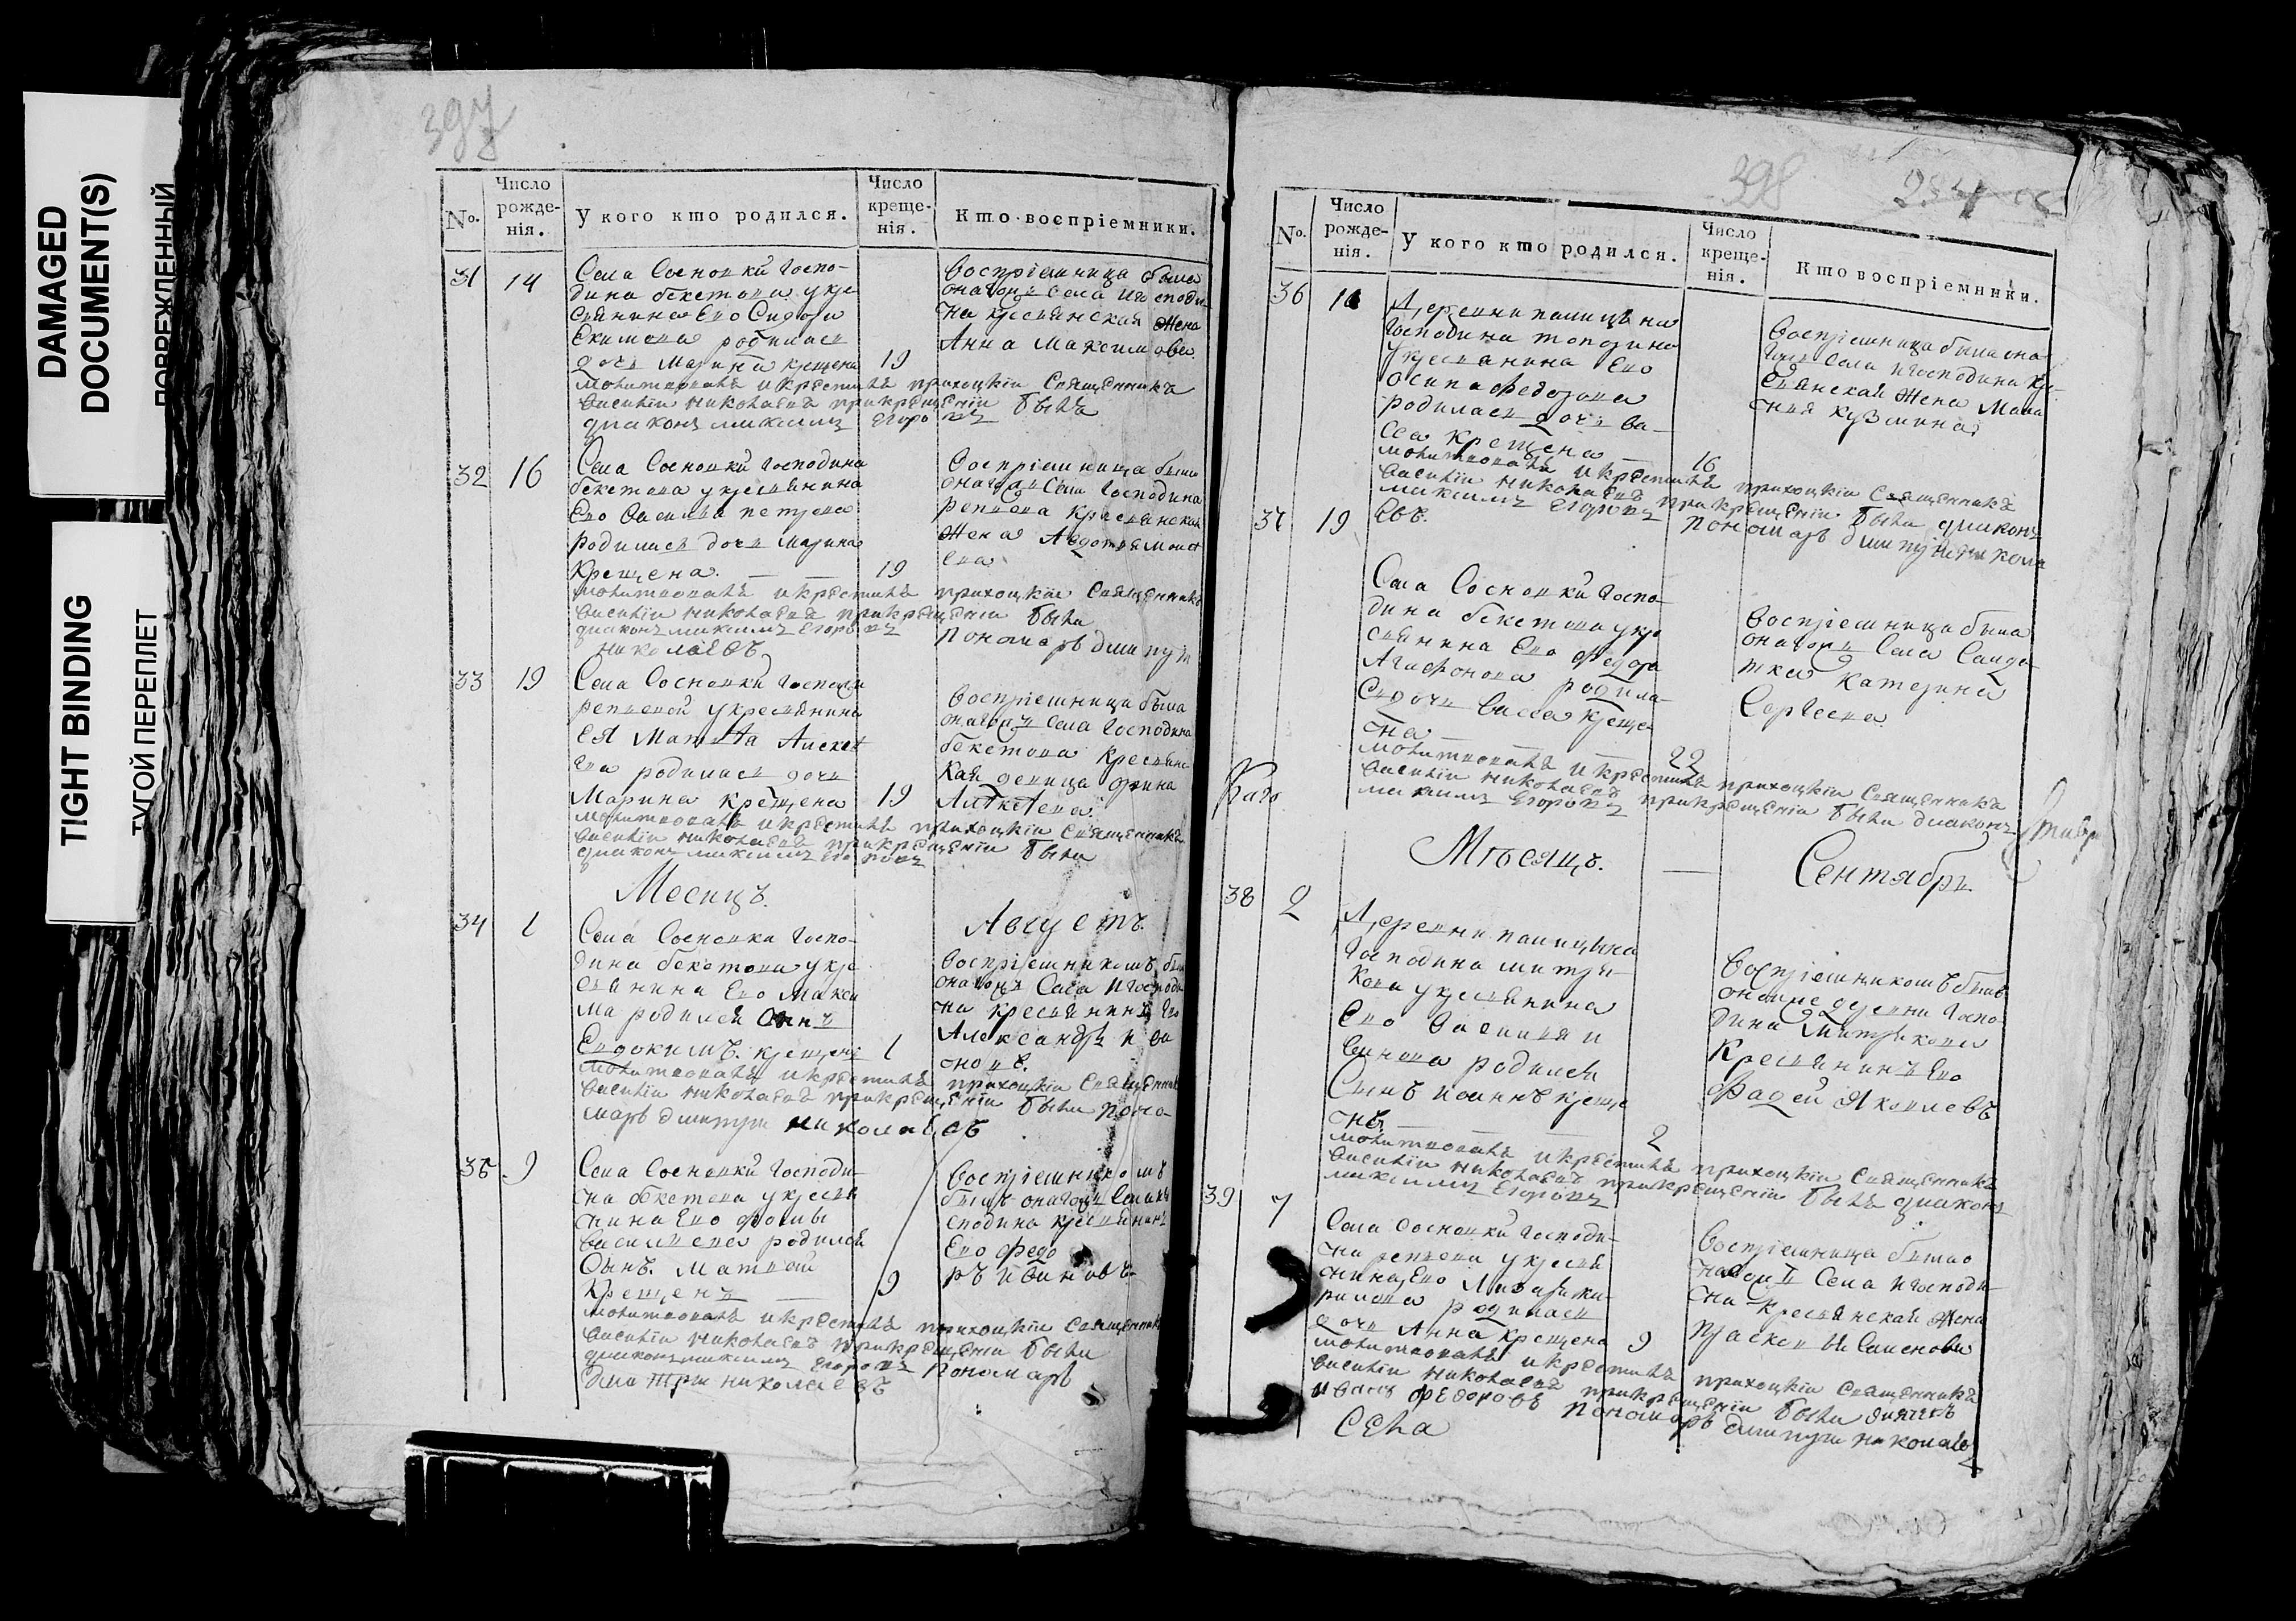 DAMAGED
DOCUMENT(S)
ПОВРЕЖДЕННЫЙ
TIGHT BINDING
ТУГОЙ ПЕРЕПЛЕТ
397
No.
Число рождения.
У кого кто родился.
Число крещенія.
Кто воспріемники.
31 14
Села Сосновки Госпо-
дина бекетова укре
стьянина Его Сидора
Екимова родилась
дочь Марина крещена 19
Воспріемница была
оногожъ Села
на крестьянская жена
Анна Максимова
молитвовалъ икрестилъ приходскій Священникъ
Василій николаевъ прикрещеніи былъ
диаконъ максимъ Егоровъ
32 16
Села Сосновки Господина
бекетова укрестьянина
Его Василья петрова
родилась дочь Марина
Крещена 19
Воспріемница была
оногожъ Села Господина
репьева крестьянская
жена Авдотья
молитвовалъ икрестилъ приходскій Священникъ
Василій николаевъ прикрещеніи были
диаконъ максимъ Егоровъ
пономарь дмитрій
николаевъ
33 19
Села Сосновки Госпожи
репьевой укрестьянина
Ея Матвея Алексе
ева родилась дочь
Марина крещена 19
Воспріемница была
оногожъ Села Господина
бекетова Крестьянс
кая девица
Алексеева
молитвовалъ икрестилъ приходскій Священникъ
Василій николаевъ прикрещеніи были
диаконъ максимъ Егоровъ
Месицъ. Августъ.
34 1
Села Сосновки Госпо-
дина бекетова укре
стьянина Его Макси
ма родился Сынъ
Евдокимъ. крещенъ 1
Воспріемникомъ былъ
оногожъ Села Игосподи
на крестьянинъ Его
Александръ ива
новъ.
молитвовалъ икрестилъ приходскій Священникъ
Василій николаевъ прикрещеніи были поно-
марь дмитрій николаевъ
35 9
Села Сосновки Господи-
на бекетова укрестья
нина Его Фомы
Васильева родился
Сынъ. Матвей
Крещенъ 9
Воспріемникомъ
былъ оногожъ Села иго
сподина крестьянинъ
Его Федо
ръ ивановъ
молитвовалъ икрестилъ приходскій Священникъ
Василій николаевъ прикрещеніи были
диаконъ максимъ Егоровъ пономарь
дмитрій николаевъ
398
234
No.
Число рождения.
У кого кто родился.
Число крещенія.
Кто воспріемники.
36 16
Деревни
Господина
укрестьянина Его
осипа Федорова
родилась дочь ва-
сса крещена 16
Воспріемница была оно
гожъ Села Игосподина кре-
стьянская жена Мала
нья кузмина
молитвовалъ икрестилъ приходскій Священникъ
Василій николаевъ прикрещеніи были диаконъ
максимъ Егоровъ пономарь дмитрій никола
евъ.
37 19
Села Сосновки Госпо-
дина бекетова укре
стьянина Его Федора
Агафонова родила-
сь дочь васса креще
на 22
Воспріемница была
оногожъ Села Солда-
тка Катерина
Сергеева
молитвовалъ икрестилъ приходскій Священникъ
Василій николаевъ прикрещеніи были диаконъ
максимъ Егоровъ
Мѣсяцъ. Сентябрь.
38 2
Деревни
Господина митри-
кова укрестьянина
Его Василья и
ванова родился
Сынъ иоаннъ креще
нъ 2
Воспріемникомъ былъ
оноиже деревни Госпо-
дина Митрикова
Крестьянинъ Его
Фадей Яковлевъ
молитвовалъ икрестилъ приходскій Священникъ
Василій николаевъ прикрещеніи былъ диаконъ
максимъ Егоровъ
39 7
Села Сосновки Господи-
на репьева укрестья
нина Его
рилова родилась
дочь Анна крещена 9
Воспріемница была о
ногожъ Села Игосподи-
на Крестьянская жена
Праскевья Семенова
молитвовалъ икрестилъ приходскій Священникъ
Василій николаевъ прикрещеніи были дьячекъ
иванъ федоровъ пономарь дмитрій николаевъ
Села